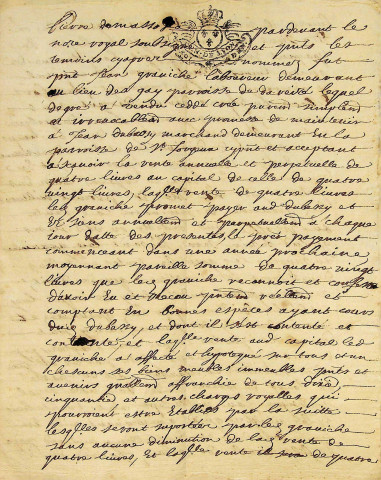 pardevant le
notre royal soubsigné et puis les
temoins cyapres nommes fut
pnt Jean graniche Laboureur demeurant
au lieu des gay parroisse du lequel
de gré a vendu cedde puremt simplemt
et irrevocablemt avec promesse de maintenir
a Jean dubessy marchand demeurant En la
parroisse de St cypnt et acceptant
a sçavoir la rente annuelle et perpetuelle de
quatre livres au capital de celle de quatre
vingt livres, laqlle rente de quatre livres
led graniche promet payer aud dubessy et
es siens annuellemt et perpetuellemt a chaque
jour datte des presentes, le pr̃er payement
commencant dans une année prochaine
moyennant pareille somme de quatre vingt
livres que led graniche reconnoit et confesse
d'avoir Eu et Receu pntemt reellemt et
comptant En bonnes espèces ayant cours
dud dubessy, et dont il s'est contenté et
contente, et laqlle rente aud capital led
graniche a affecté et hypotequé sur tous et un
chescuns ses biens meubles immeubles pnts et
avenirs quallemt affranchie de tous dixie,
cinquantie et autres, charges royalles qui
pourroient estre Etablies par la suitte
lesqlles seront suportées par led graniche
sans aucune diminution de lad rente de
quatre livres, et laqlle rente il sera de quatre